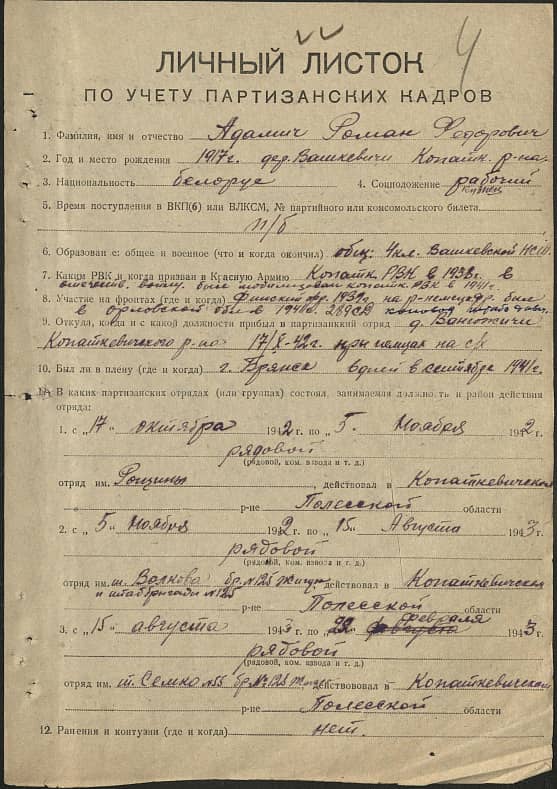 4
ЛИЧНЫЙ ЛИСТОК
ПО УЧЕТУ ПАРТИЗАНСКИХ КАДРОВ
1. Фамилия, имя и отчество Адамич Роман Федорович
2. Год и место рождения 1917г. дер. Вашкевичи Копатк. р-на
3. Национальность белорус 4. Соцположение рабочий
кузнец
5. Время поступления в ВКП(б) или ВЛКСМ, № партийного или комсомольского билета
п/б
6. Образование: общее и военное (что и когда окончил) общ: 4кл. Вашкевской НСШ
7. Каким РВК и когда призван в Красную Армию Копатк. РВК в 1938г. в
отечеств. войну был мобилизован копатк. РВК в 1941г.
8. Участие на фронтах (где и когда) Финский фр. 1939г. на р-немецк. фр. был
в орловской обл в 1941г.
9. Откуда, когда и с какой должности прибыл в партизанский отряд д.
Копаткевичского р-на 17/X-42г. при немцах на с/х
10. Был ли в плену (где и когда) г. Брянск в сентябре 1941г.
11. В каких партизанских отрядах (или группах) состоял, занимаемая должность и район действия
отряда:
1. с „17“ октября 1942 г. по „5“ Ноября 1942 г.
рядовой
(рядовой, ком. взвода и т. д.)
отряд им. Рощины действовал в Копаткевичском
р-не Полесской области
2. с „5“ Ноября 1942 г. по „15“ Августа 1943 г.
рядовой
(рядовой, ком. взвода и т. д.)
отряд им. т. Волкова бр. №125 действовал в Копаткевичском
и штаб бригады №125
р-не Полесской области
февраля
3. с „15“ августа 1943 г. по „22“ 1943 г.
рядовой
(рядовой, ком. взвода и т. д.)
отряд им. т. Семко №55 бр. №125 действовал в Копаткевичском
р-не Полесской области
12. Ранения и контузии (где и когда) нет.